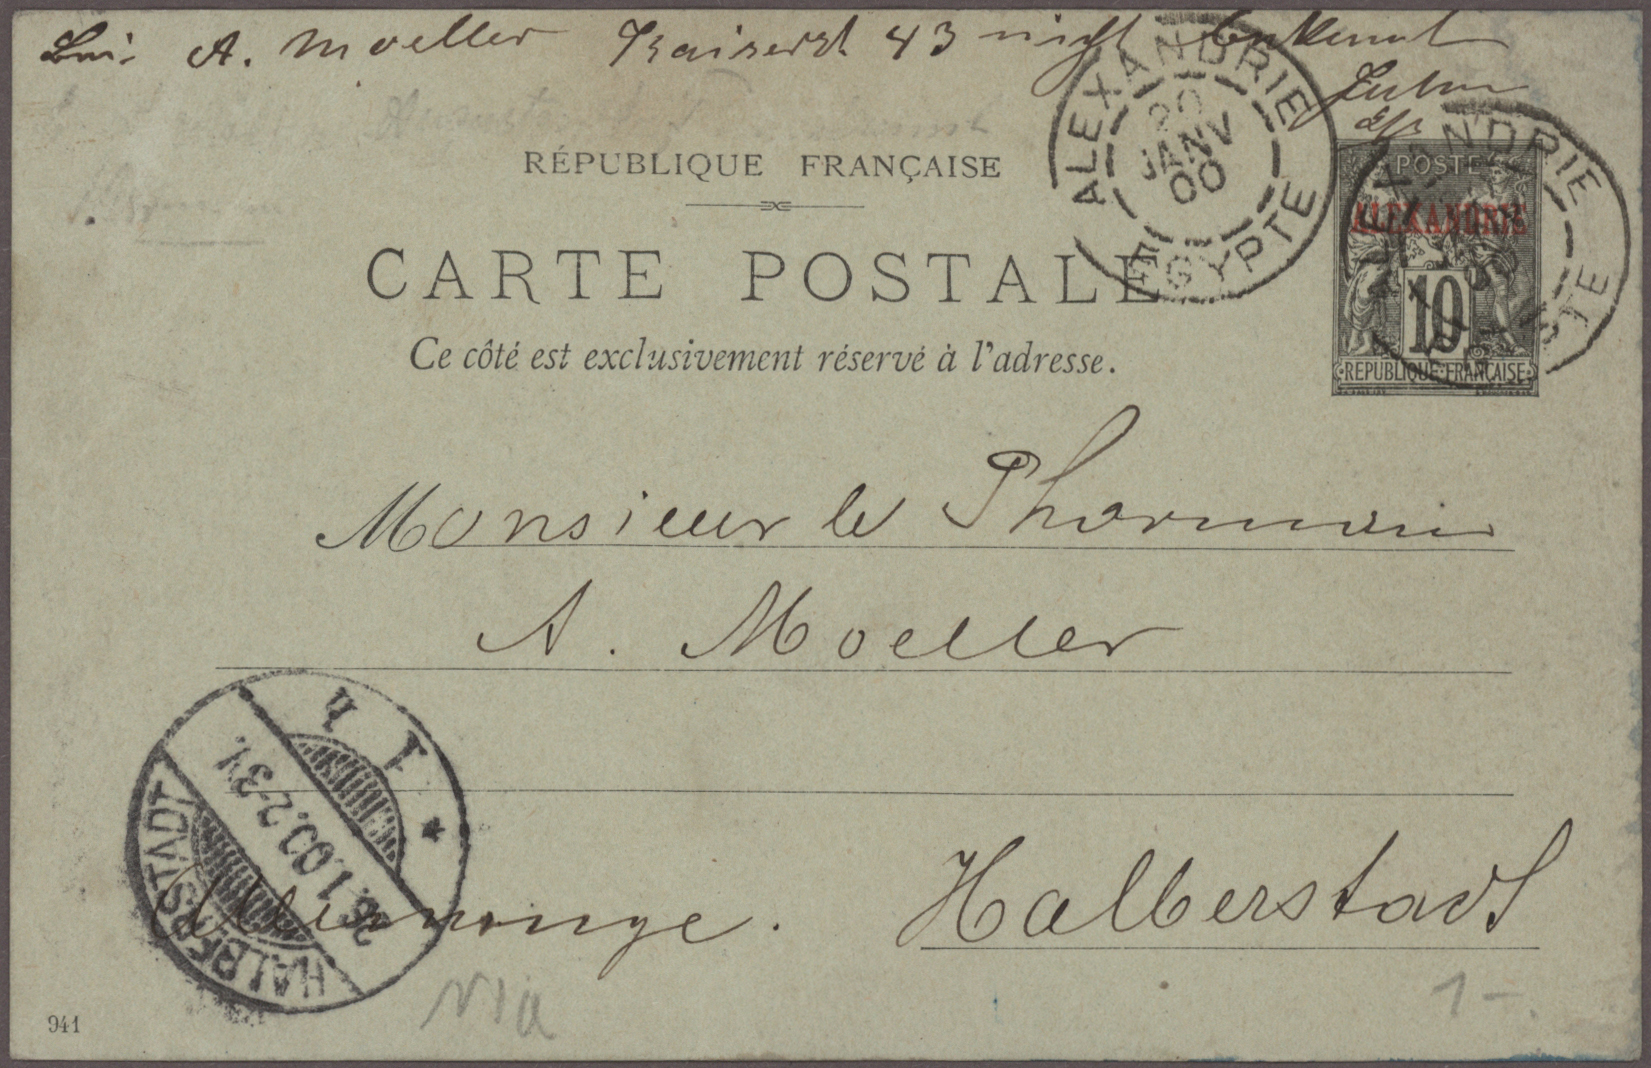 Bei A. Moeller Kaiserst 43 nicht bekannt
RÉPUBLIQUE FRANÇAISE
CARTE POSTALE
Ce côté est exclusivement réservé à l'adresse.
ALEXANDRIE
20
JANV
00
EGYPTE
POSTES
ALEXANDRIE
10
REPUBLIQUE FRANÇAISE
Monsieur le Pharmacien
A. Moeller
Halberstadt
Allemagne.
HALBERSTADT
26.1.00.2-3V.
1 h
*
1-.
941